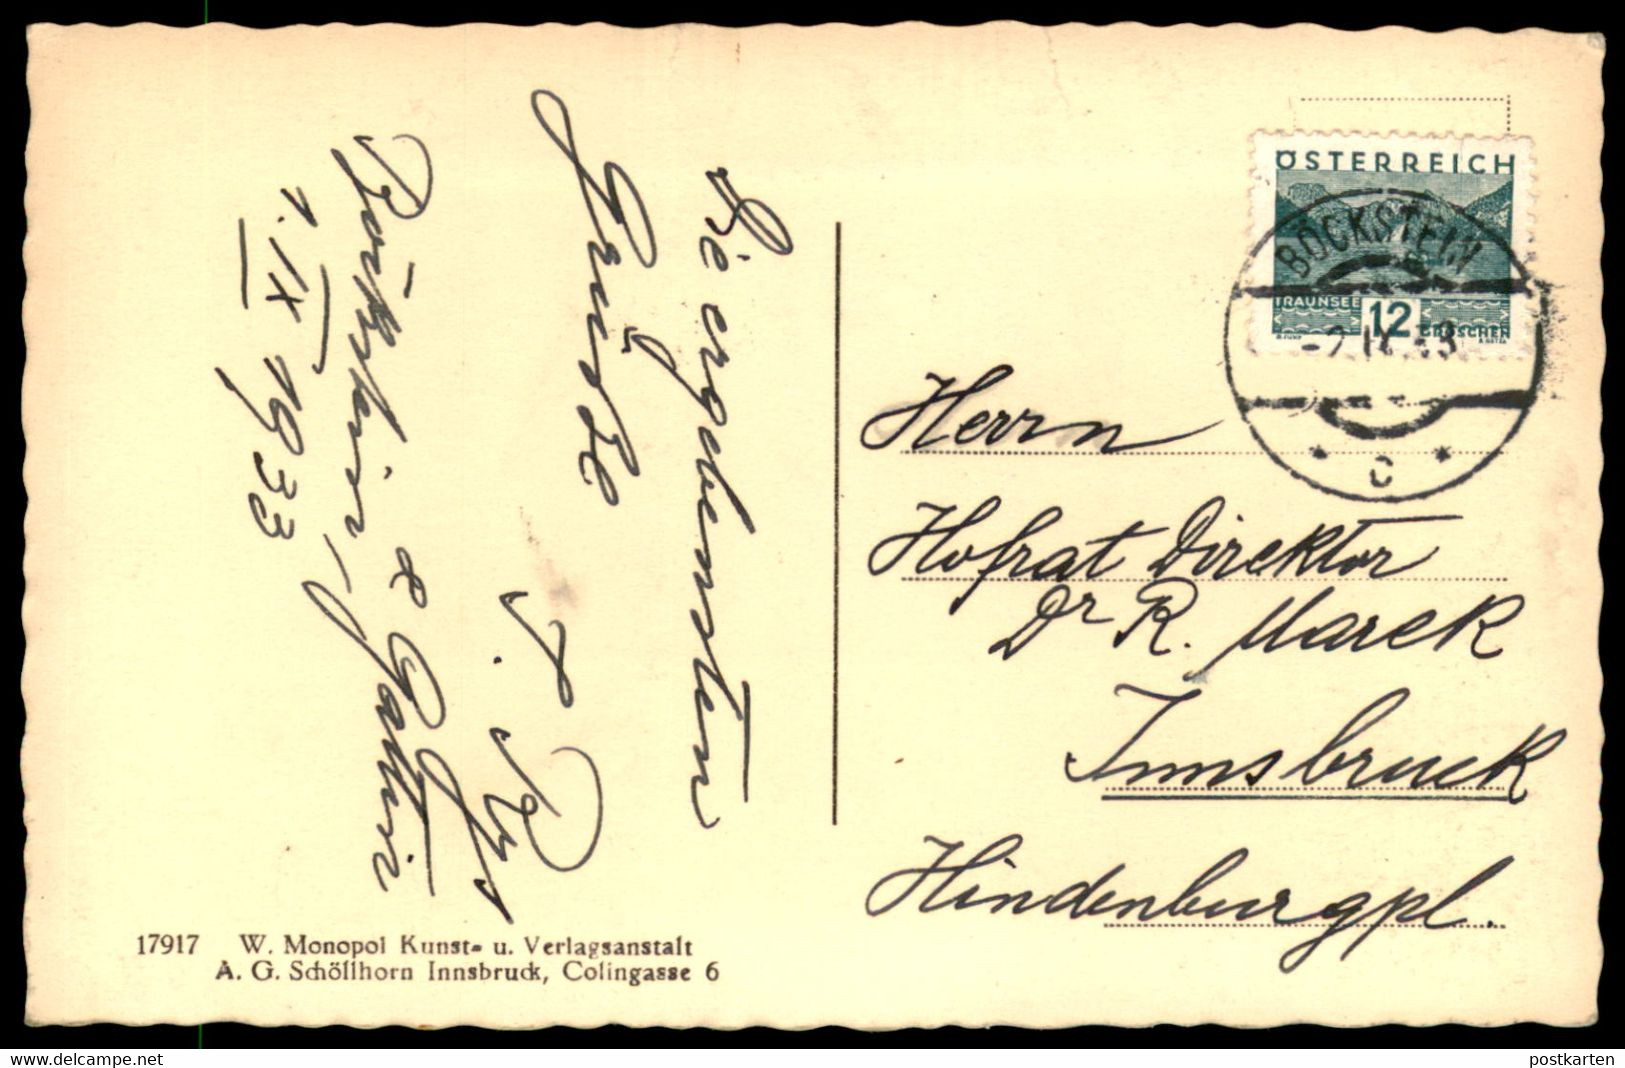 Die ergebensten
Grüße
& Gattin
Böckstein,
1. IX 1933
ÖSTERREICH
TRAUNSEE 12 GROSCHEN
BÖCKSTEIN
-2.IX.33
* C *
Herrn
Hofrat Direktor
Dr R. Marek
Innsbruck
Hindenburgpl.
17917 W. Monopol Kunst- u. Verlagsanstalt
A. G. Schöllhorn Innsbruck, Colingasse 6
www.delcampe.net
postkarten